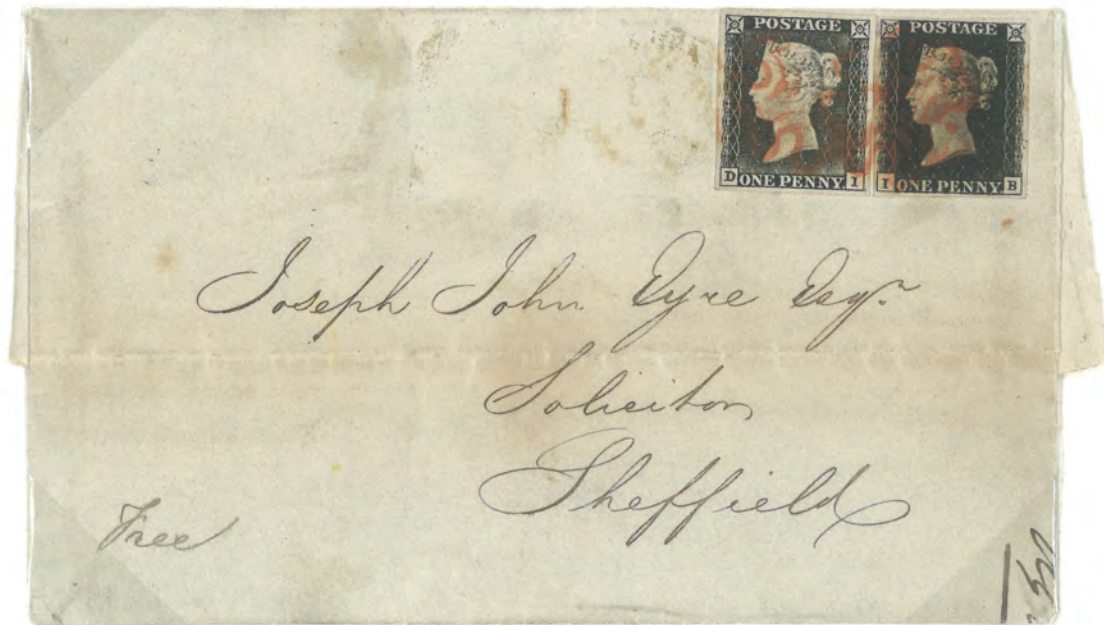 POSTAGE POSTAGE
D ONE PENNY. I I ONE PENNY. B
Joseph John Eyre Esqr.
Solicitor
Sheffield
Free